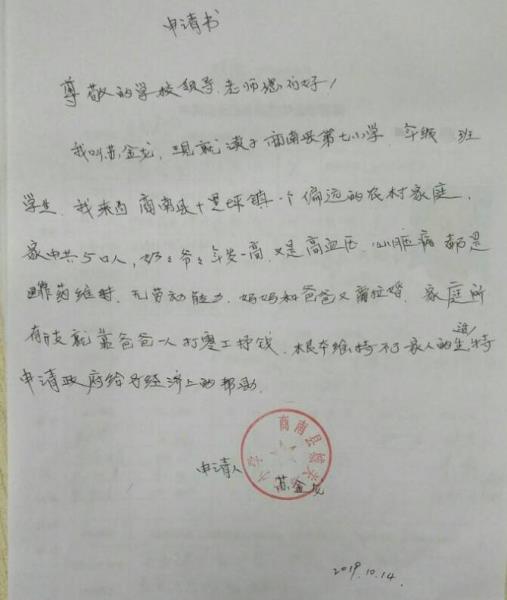 申请书
尊敬的学校领导、老师您们好!
我叫苏金龙,现就读于商南县第七小学 年级 班
学生.我来自商南县十里坪镇一个偏远的农村家庭.
家中共5口人,奶奶爷爷年岁一高.又是高血压、心脏病 都是
靠药维持,无劳动能力,妈妈和爸爸又离婚,家庭所
有开支就靠爸爸一人打零工挣钱,根本维持不了家人的生活!特
申请政府给予经济上的帮助.
申请人
苏金龙
商南县 小学
2019.10.14.